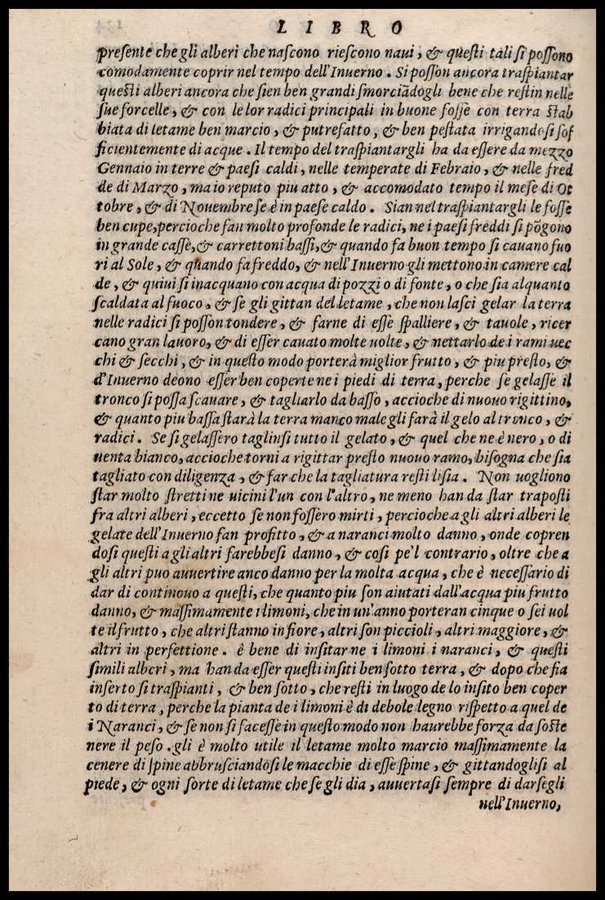 LIBRO
presente che gli alberi che nascono riescono naui, & questi tali si possono
comodamente coprir nel tempo dell'Inuerno. Si posson ancora traspiantar
questi alberi ancora che sien ben grandi smorciãdogli bene che restin nelle
sue forcelle, & con le lor radici principali in buone fosse con terra stab
biata di letame ben marcio, & putrefatto, & ben pestata irrigandosi sof
ficientemente di acque. Il tempo del traspiantargli ha da essere da mezzo
Gennaio in terre & paesi caldi, nelle temperate di Febraio, & nelle fred
de di Marzo, ma io reputo piu atto, & accomodato tempo il mese di Ot
tobre, & di Nouembre se è in paese caldo. Sian nel traspiantargli le fosse
ben cupe, percioche fan molto profonde le radici, ne i paesi freddi si põgono
in grande casse, & carrettoni bassi, & quando fa buon tempo si cauano fuo
ri al Sole, & quando fa freddo, & nell'Inuerno gli mettono in camere cal
de, & quiui si inacquano con acqua di pozzi o di fonte, o che sia alquanto
scaldata al fuoco, & se gli gittan del letame, che non lasci gelar la terra
nelle radici si posson tondere, & farne di esse spalliere, & tauole, ricer
cano gran lauoro, & di esser cauato molte uolte, & nettarlo de i rami uec
chi & secchi, & in questo modo porterà miglior frutto, & piu presto, &
d'Inuerno deono esser ben coperte ne i piedi di terra, perche se gelasse il
tronco si possa scauare, & tagliarlo da basso, accioche di nuouo rigittino,
& quanto piu bassa starà la terra manco male gli farà il gelo al tronco, &
radici. Se si gelassero taglinsi tutto il gelato, & quel che ne è nero, o di
uenta bianco, accioche torni a rigittar presto nuouo ramo, bisogna che sia
tagliato con diligenza, & far che la tagliatura resti lisia. Non uogliono
star molto strettine uicini l'un con l'altro, ne meno han da star traposti
fra altri alberi, eccetto se non fossero mirti, percioche a gli altri alberi le
gelate dell'Inuerno fan profitto, & a naranci molto danno, onde copren
dosi questi a gli altri farebbesi danno, & cosi pe'l contrario, oltre che a
gli altri puo auuertire anco danno per la molta acqua, che è necessario di
dar di continouo a questi, che quanto piu son aiutati dall'acqua piu frutto
danno, & massimamente i limoni, che in un'anno porteran cinque o sei uol
te il frutto, che altri stanno in fiore, altri son piccioli, altri maggiore, &
altri in perfettione. è bene di insitar ne i limoni i naranci, & questi
simili alberi, ma han da esser questi insiti ben sotto terra, & dopo che sia
inserto si traspianti, & ben sotto, che resti in luogo de lo insito ben coper
to di terra, perche la pianta de i limoni è di debole legno rispetto a quel de
i Naranci, & se non si facesse in questo modo non haurebbe forza da soste
nere il peso. gli è molto utile il letame molto marcio massimamente la
cenere di spine abbrusciandosi le macchie di esse spine, & gittandoglisi al
piede, & ogni sorte di letame che se gli dia, auuertasi sempre di darsegli
nell'Inuerno,